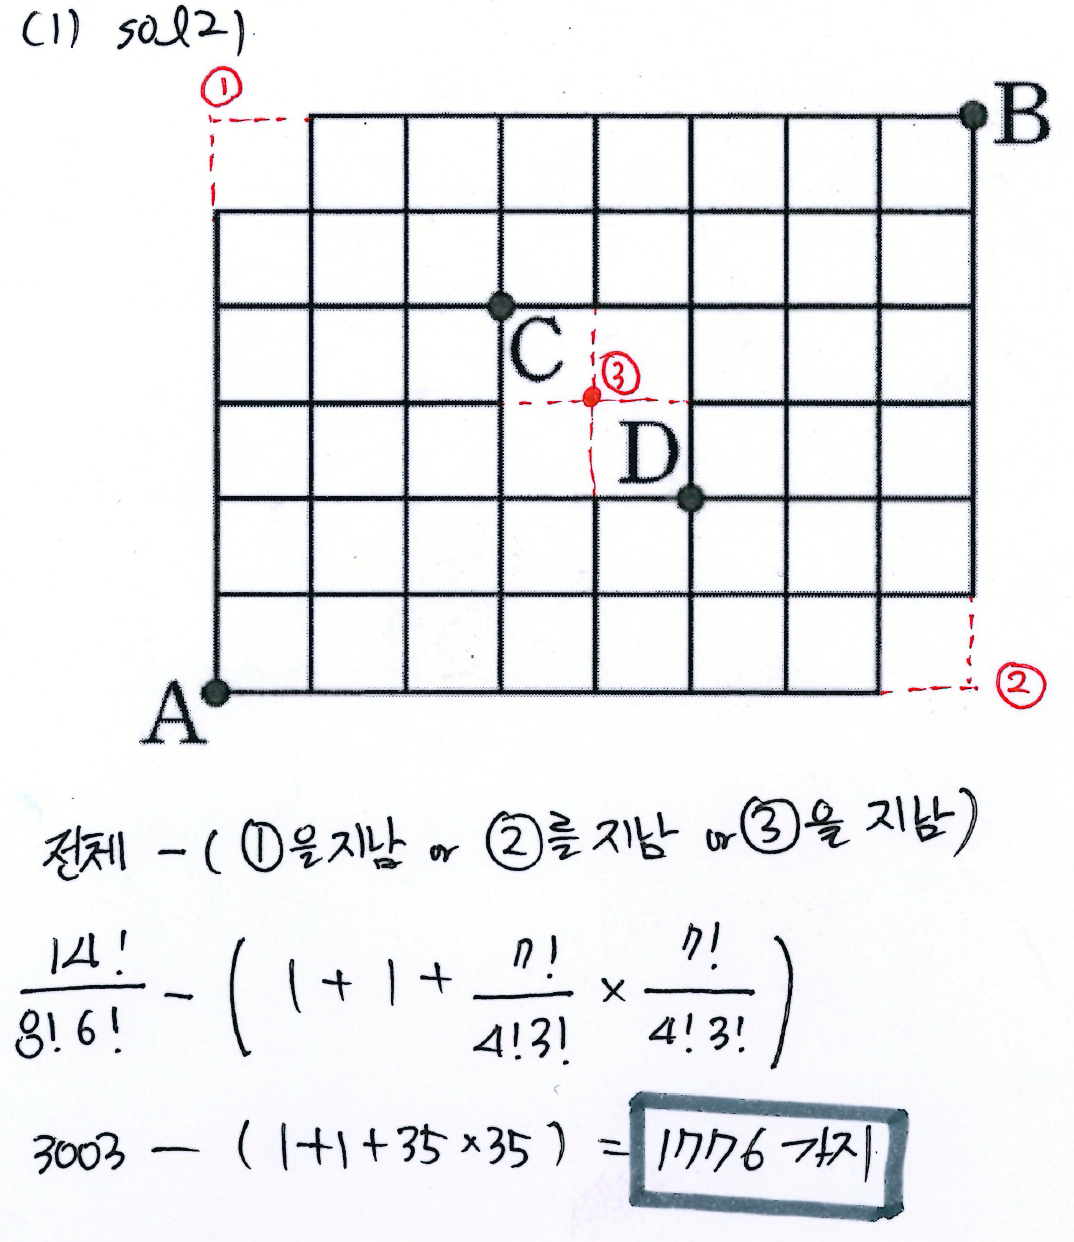 (1) sol2)
①
B
C
③
D
A
②
전체 - ( ①을 지남 or ②를 지남 or ③을 지남 )
14!/8!6! - ( 1 + 1 + 7!/4!3! × 7!/4!3! )
3003 - ( 1+1+35×35 ) = 1776가지